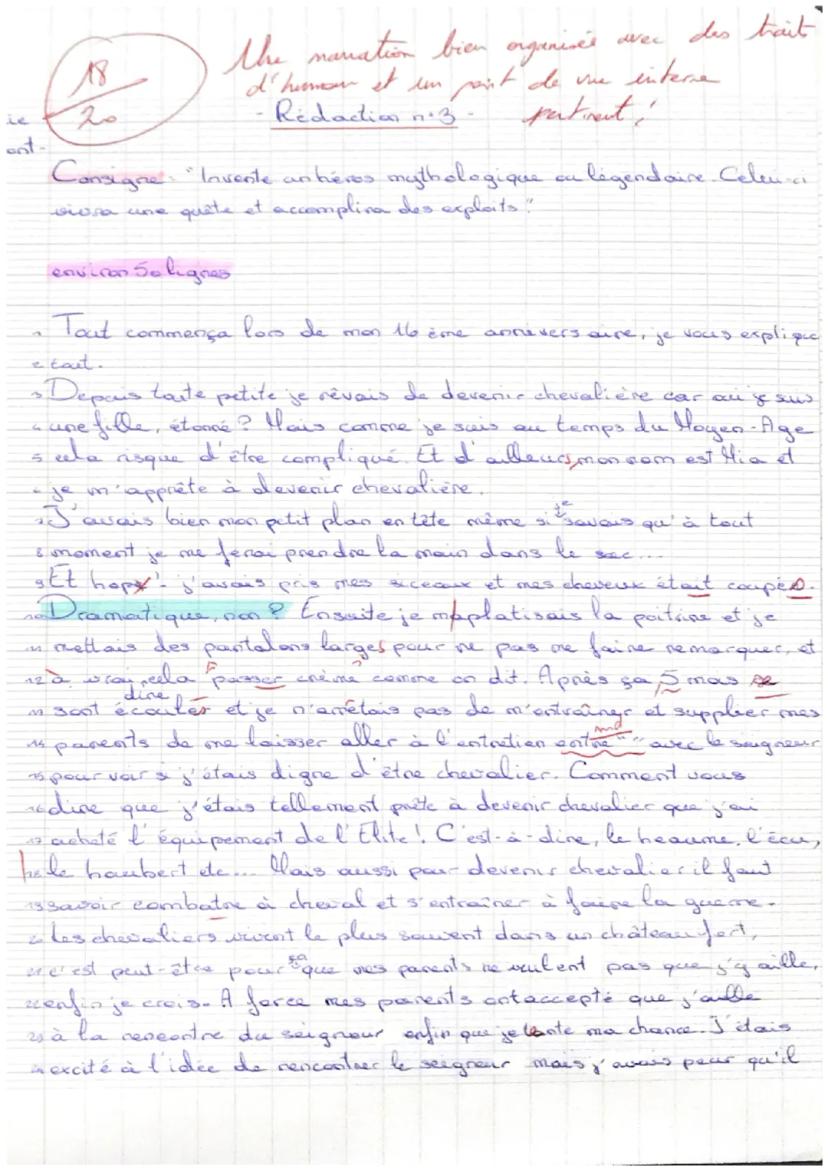 18
20
Une narration bien organisée avec des trait
d'humour et un point de vue interne
pertinent !
- Rédaction n°3 -
ie
ont-
Consigne : "Invente un héros mythologique ou légendaire. Celui-ci
vivra une quête et accomplira des exploits."
environ 50 lignes
1 Tout commença lors de mon 16 ème annversaire, je vous explique
2 tout.
3 Depuis toute petite je rêvais de devenir chevalière car oui je suis
4 une fille, étonné ? Mais comme je suis au temps du Moyen-Age
5 cela risque d'être compliqué. Et d'ailleurs, mon nom est Mia et
6 je m'apprête à devenir chevalière.
7 J'avais bien mon petit plan en tête même si je savais qu'à tout
8 moment je me ferai prendre la main dans le sac...
9 Et hop ! j'avais pris mes siceaux et mes cheveux était coupés.
10 Dramatique, non ? Ensuite je m'aplatisais la poitrine et je
11 mettais des pantalons larges pour ne pas me faire remarquer, et
12 à vrai dire cela "passer crème" comme on dit. Après ça, 5 mois se
13 sont écoulés et je n'arrêtais pas de m'entraîner et supplier mes
14 parents de me laisser aller à l'entretien entre " " avec le seigneur
15 pour voir si j'étais digne d'être chevalier. Comment vous
16 dire que j'étais tellement prête à devenir chevalier que j'ai
17 acheté l'équipement de l'Elite ! C'est-à-dire, le heaume, l'écu,
18 le haubert etc... Mais aussi pour devenir chevalier il faut
19 savoir combatre à cheval et s'entraîner à faire la guerre.
20 Les chevaliers vivent le plus souvent dans un château fort,
21 c'est peut-être pour ça que mes parents ne veulent pas que j'y aille,
22 enfin je crois. A force mes parents ont accepté que j'aille
23 à la rencontre du seigneur enfin que je tente ma chance. J'étais
24 excité à l'idée de rencontrer le seigneur mais j'avais peur qu'il